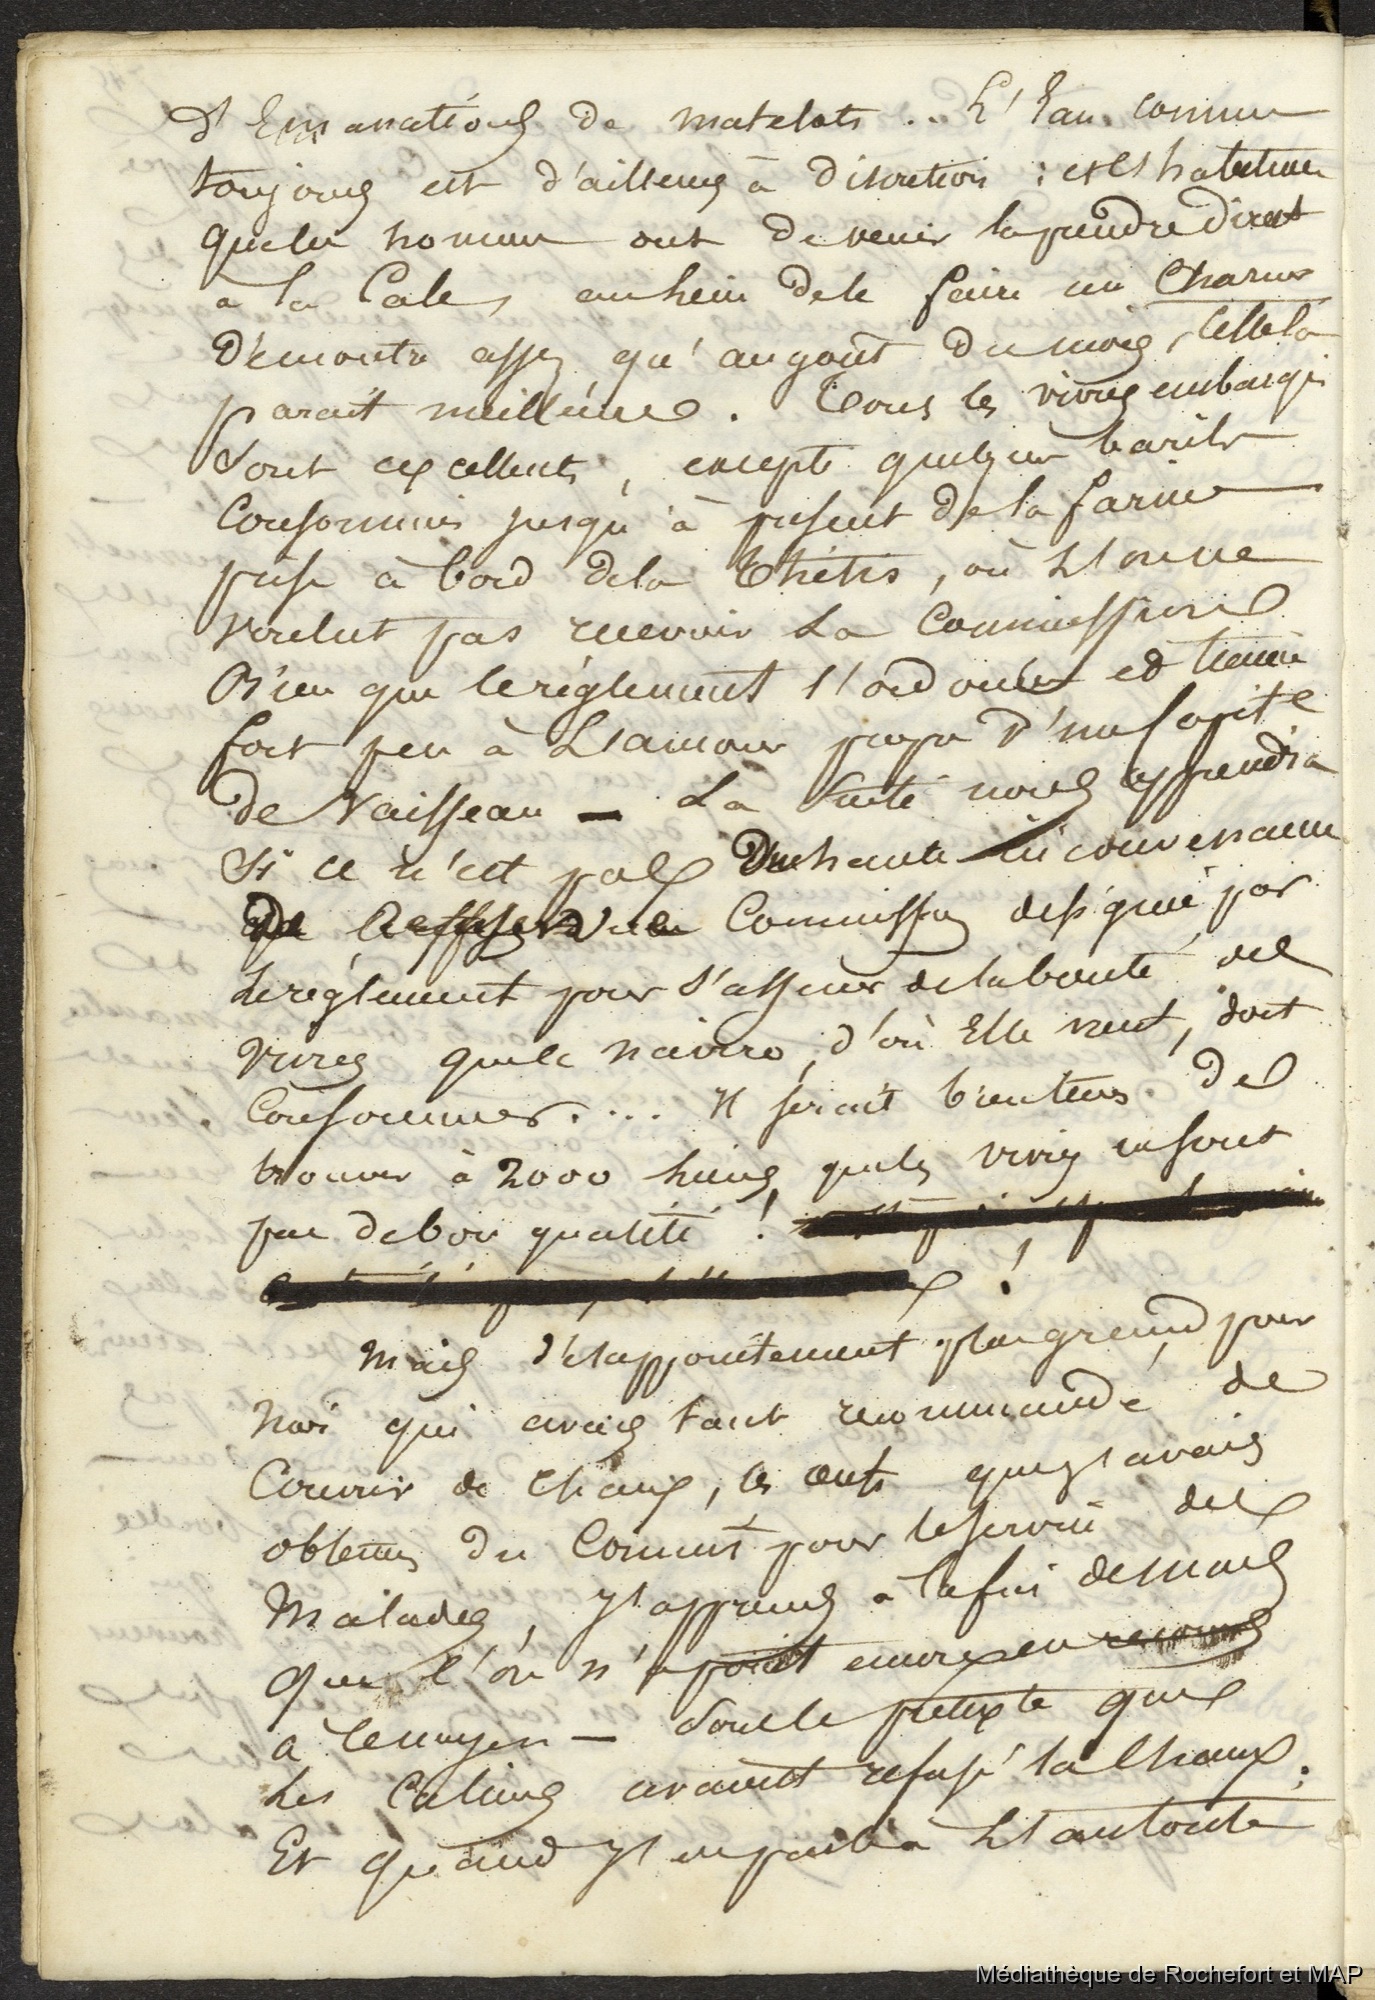 d'Emanations de matelots .. L'Eau comme
toujours est d'ailleurs à discretion : et l'habitude
que les hommes ont de venir la prendre direct
à la Cale, au lieu de le faire au Charnier
démontre assez qu'au goût du moins, celle là
parait meilleure. Tous les vivres embarqués
sont excellents, excepté quelques barils
consommés jusqu'à présent de la farine
prise à bord de la Thétis, où l'on ne
voulut pas recevoir la Commission
bien que le règlement l'ordonne et
fort peu à l'amour propre d'un Capite
de Vaisseau — La suite nous apprendra
si ce n'est pas haute inconvenance
Commission désignée par
le règlement pour s'assurer de la bonté des
vivres que le navire, d'où Elle vient, doit
consommer .... Il serait bien tems de
trouver à 2000 lieues que les vivres ne sont
pas de bon qualité !
!
Mais désappointement plus grand, pour
moi qui avais tant recommandé de
couvrir de chaux, les oeufs que j'avais
obtenus du Commis pour le service des
Malades, j'apprends à la fin de mars
que l'on n'a point encore eu recours
à ce moyen — sous le prétexte que
les Caliers avaient refusé la Chaux.
Et quand j'en parlai à l'autorité